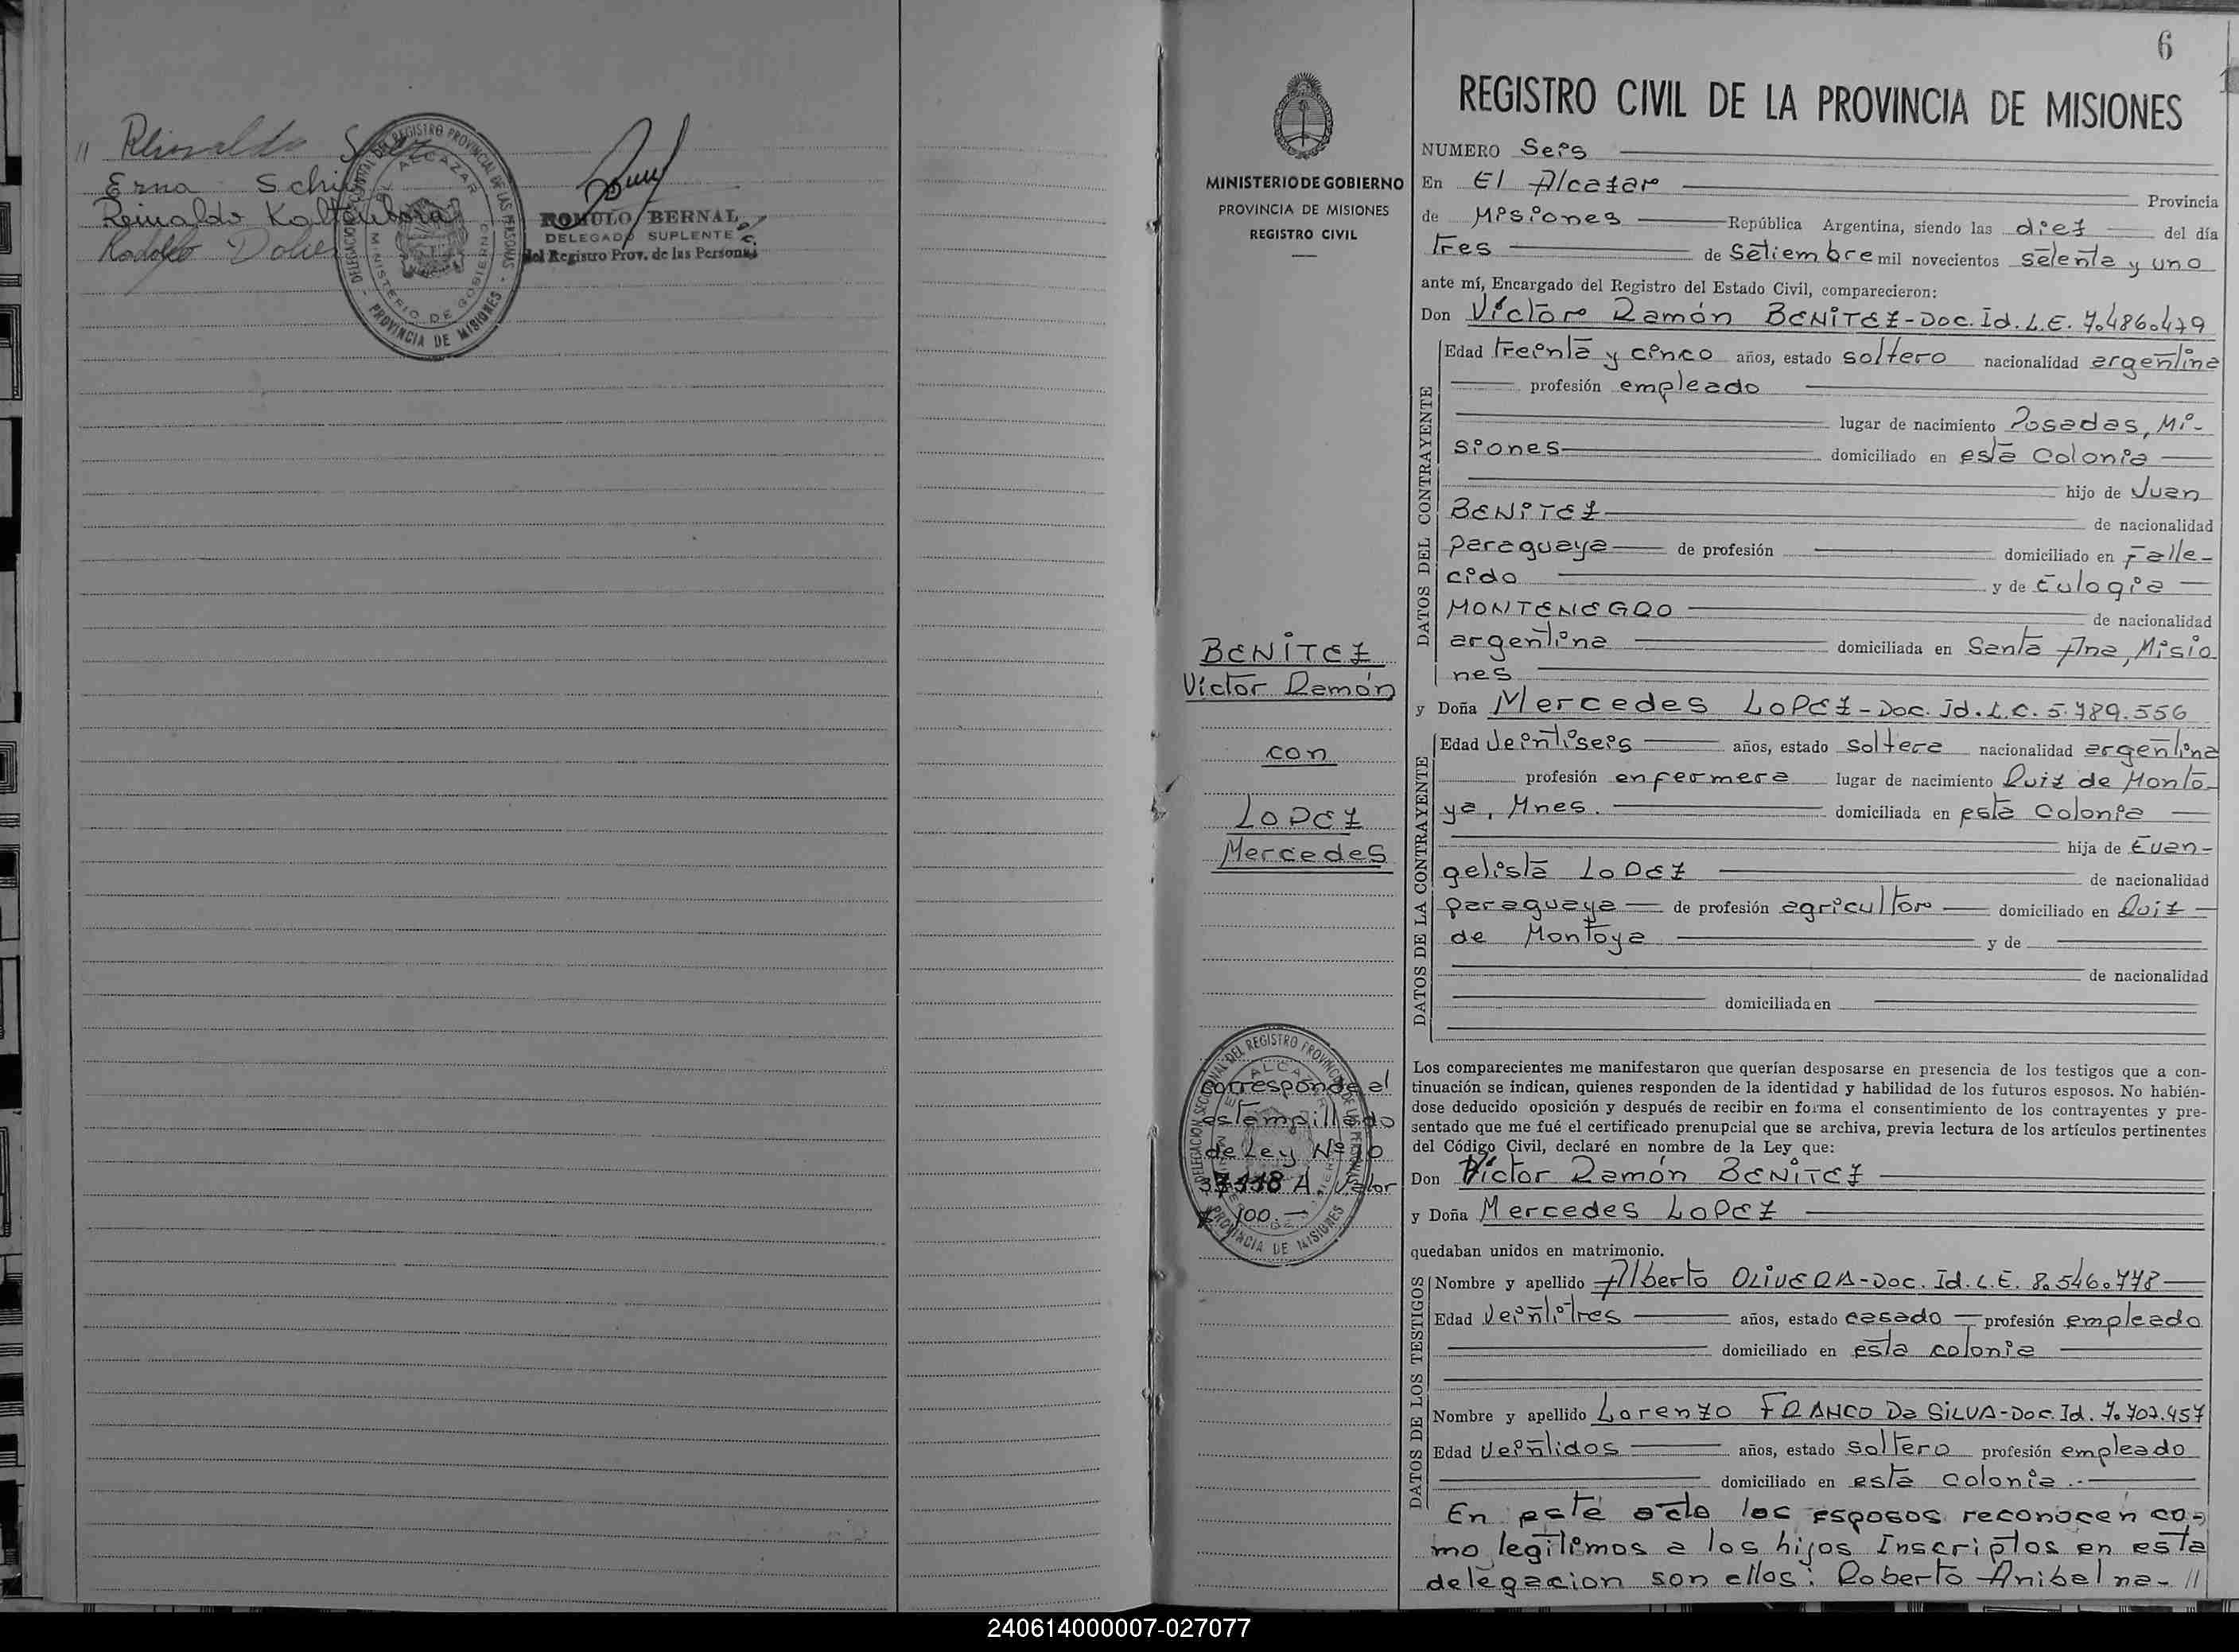 " Reinaldo
Erna
Reinaldo Kaltenborn
Rodolfo
DELEGACION SECCIONAL DEL REGISTRO PROVINCIAL DE LAS PERSONAS - PROVINCIA DE MISIONES -
EL ALCAZAR
MINISTERIO DE GOBIERNO
ROMULO BERNAL
DELEGADO SUPLENTE
del Registro Prov. de las Personas
MINISTERIO DE GOBIERNO
PROVINCIA DE MISIONES
REGISTRO CIVIL
BENITEZ
Victor Ramón
con
LOPEZ
Mercedes
DELEGACION SECCIONAL DEL REGISTRO PROVINCIAL DE LAS PERSONAS
EL ALCAZAR
PROVINCIA DE MISIONES
corresponde al
estampillado
de Ley Nº 10
A. Valor
$ 100.—
6
REGISTRO CIVIL DE LA PROVINCIA DE MISIONES
NUMERO Seis
En El Alcazar
Provincia
de Misiones República Argentina, siendo las diez del día
tres de Setiembre mil novecientos setenta y uno
ante mí, Encargado del Registro del Estado Civil, comparecieron:
Don Víctor Ramón BENITEZ-Doc. Id. L.E. 7.486.479
DATOS DEL CONTRAYENTE
Edad treinta y cinco años, estado soltero nacionalidad argentina
profesión empleado
lugar de nacimiento Posadas, Mi-
siones domiciliado en esta Colonia
hijo de Juan
BENITEZ
de nacionalidad
paraguaya de profesión domiciliado en Falle-
cido y de Eulogia
MONTENEGRO
de nacionalidad
argentina domiciliada en Santa Ana, Misio
nes
y Doña Mercedes LOPEZ-Doc. Id. L.C. 5.789.556
DATOS DE LA CONTRAYENTE
Edad Veintiseis años, estado soltera nacionalidad argentina
profesión enfermera lugar de nacimiento Ruiz de Monto-
ya, Mnes. domiciliada en esta Colonia
hija de Evan-
gelista LOPEZ
de nacionalidad
paraguaya de profesión agricultor domiciliado en Ruiz
de Montoya y de
de nacionalidad
domiciliada en
Los comparecientes me manifestaron que querían desposarse en presencia de los testigos que a con-
tinuación se indican, quienes responden de la identidad y habilidad de los futuros esposos. No habién-
dose deducido oposición y después de recibir en forma el consentimiento de los contrayentes y pre-
sentado que me fué el certificado prenupcial que se archiva, previa lectura de los artículos pertinentes
del Código Civil, declaré en nombre de la Ley que:
Don Víctor Ramón BENITEZ
y Doña Mercedes LOPEZ
quedaban unidos en matrimonio.
DATOS DE LOS TESTIGOS
Nombre y apellido Alberto OLIVERA-Doc. Id. L.E. 8.546.778
Edad Veintitres años, estado casado profesión empleado
domiciliado en esta colonia
Nombre y apellido Lorenzo FRANCO Da SILVA-Doc. Id. 7.707.457
Edad Veintidos años, estado soltero profesión empleado
domiciliado en esta colonia.-
En este acto los esposos reconocen co-
mo legitimos a los hijos Inscriptos en esta
delegacion son ellos: Roberto Anibal na- //
240614000007-027077